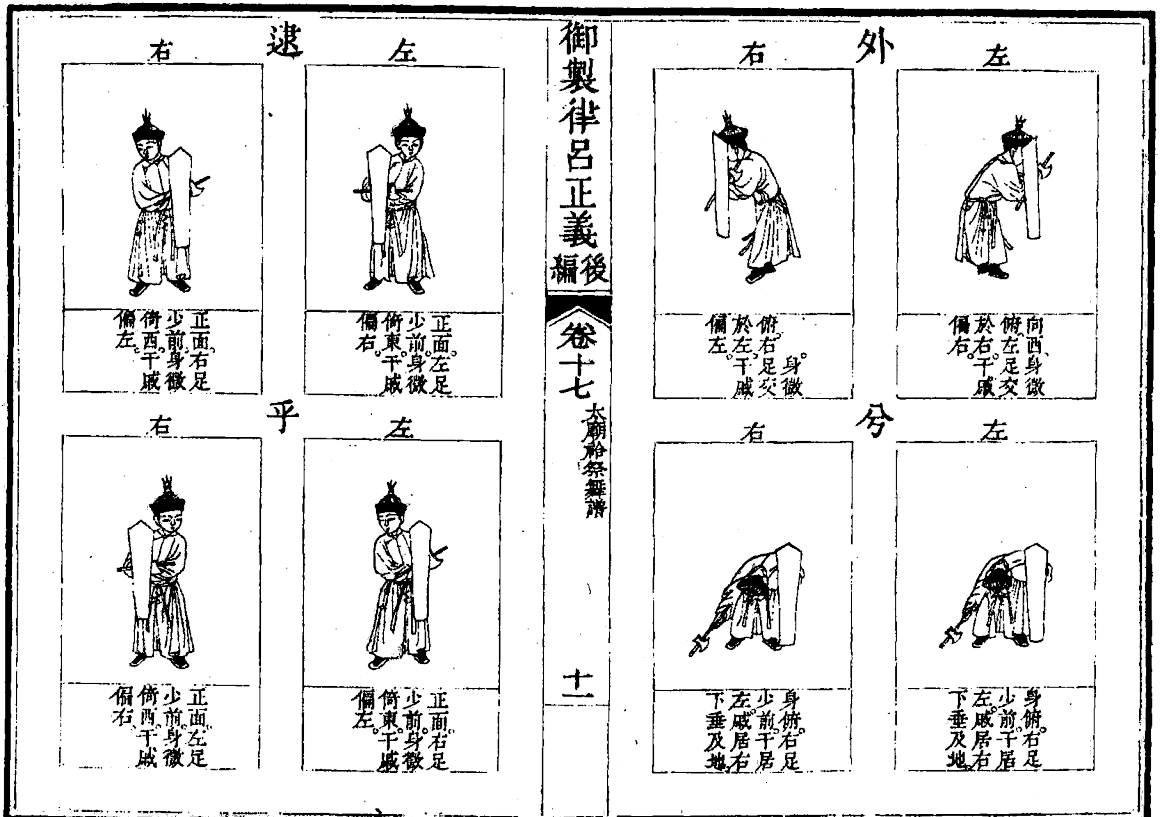 外
左
向西、身微
俯。左足交
於右。干戚
偏右。
右
身微
俯。右足交
於左。干戚
偏左。
兮
左
身俯。右足
少前。干居
左。戚居右
下垂及地。
右
身俯。右足
少前。干居
左。戚居右
下垂及地。
御製律呂正義後編
卷十七
太廟祫祭舞譜
十一
逮
左
正面。左足
少前。身微
倚東。干戚
偏右。
右
正面。右足
少前。身微
倚西。干戚
偏左。
乎
左
正面。右足
少前。身微
倚東。干戚
偏左。
右
正面。左足
少前。身微
倚西。干戚
偏右。